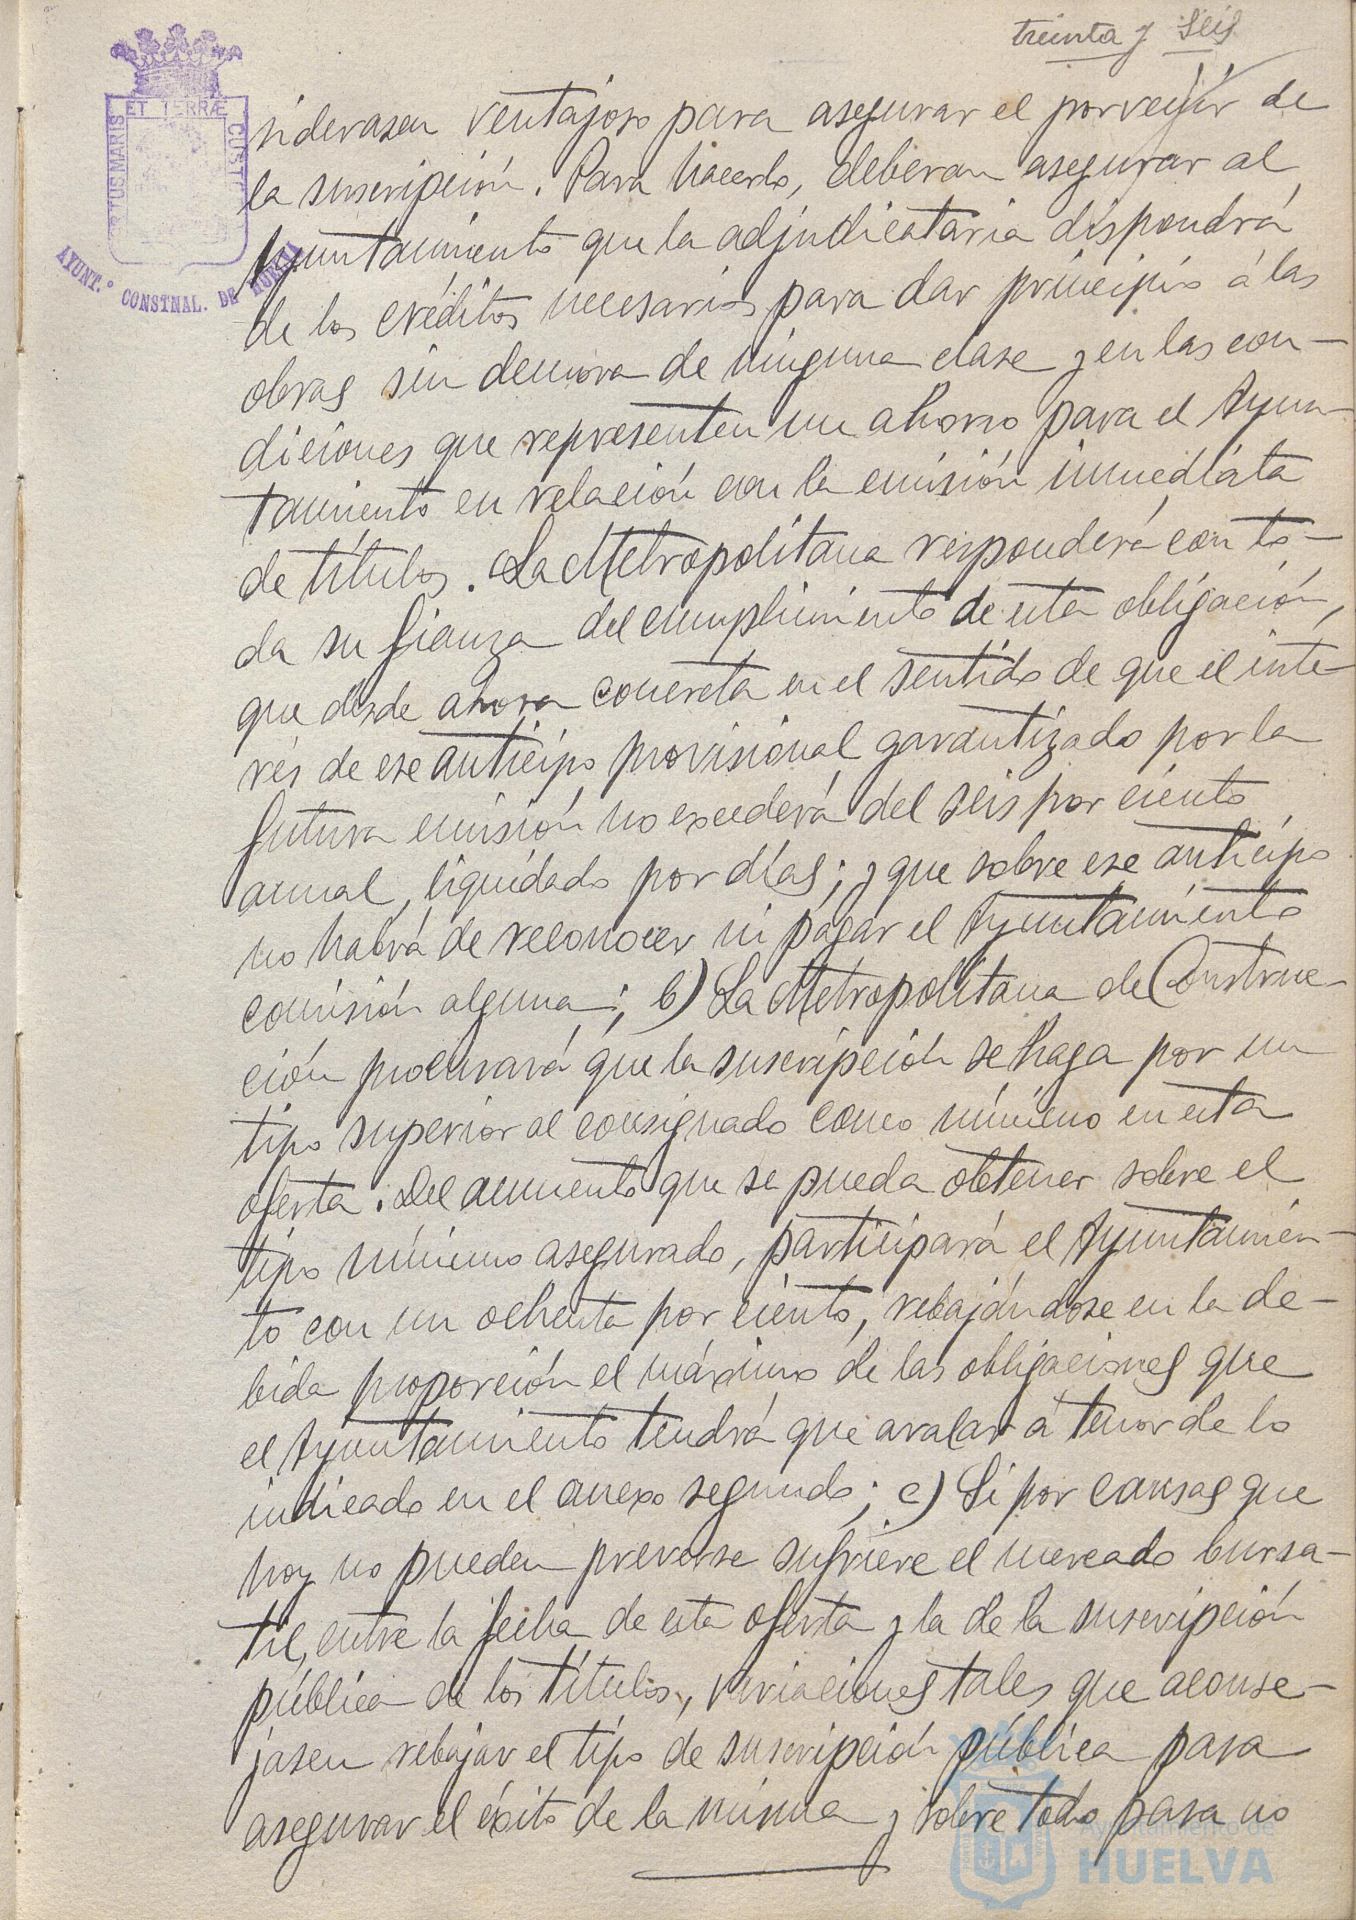 treinta y seis
ET TERRÆ
PORTUS MARIS
CUSTO
AYUNT.º CONSTNAL. DE HUELVA
siderasen ventajoso para asegurar el porvenir de
la suscripción. Para hacerlo, deberan asegurar al
Ayuntamiento que la adjudicataria dispondrá
de los créditos necesarios para dar principio á las
obras sin demora de ninguna clase y en las con-
diciones que representen un ahorro para el Ayun-
tamiento en relación con la emisión inmediata
de títulos. La Metropolitana responderá con to-
da su fianza del cumplimiento de esta obligación,
que desde ahora concreta en el sentido de que el inte
rés de ese anticipo provisional garantizado por la
futura emisión no excederá del seis por ciento
anual, liquidado por días; y que sobre ese anticipo
no habrá de reconocer ni pagar el Ayuntamiento
comisión alguna; b) La Metropolitana de Construc-
ción procurará que la suscripción se haga por un
tipo superior al consignado como mínimo en esta
oferta. Del aumento que se pueda obtener sobre el
tipo mínimo asegurado, participará el Ayuntamien-
to con un ochenta por ciento, rebajándose en la de-
bida proporción el máximo de las obligaciones que
el Ayuntamiento tendrá que avalar á tenor de lo
indicado en el anexo segundo; c) Si por causas que
hoy no pueden preverse sufriere el mercado bursa-
til, entre la fecha de esta oferta y la de la suscripción
pública de los títulos, variaciones tales que aconse-
jasen rebajar el tipo de suscripción pública para
asegurar el éxito de la misma y sobre todo para no
Ayuntamiento de
HUELVA